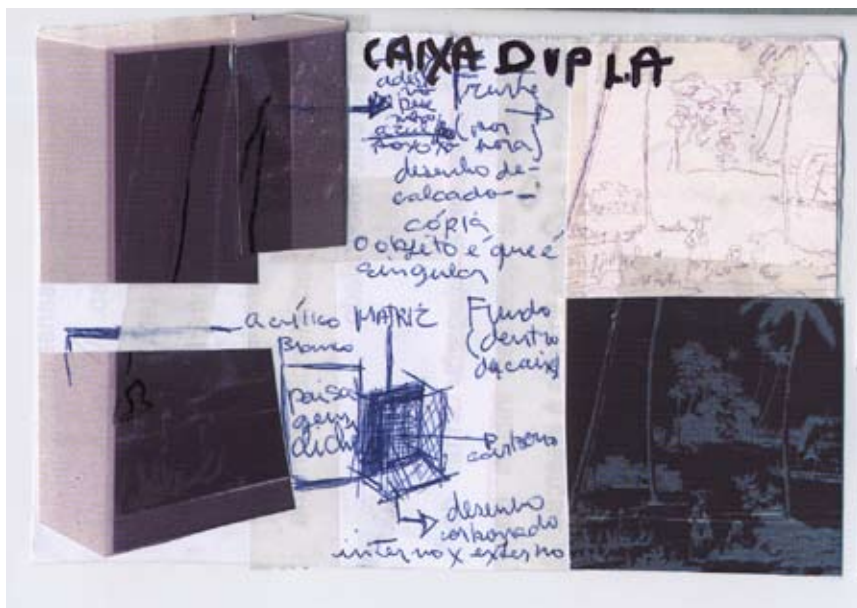 CAIXA DUPLA
Frente
(por
fora)
desenho de-
calcado -
cópia
o objeto é que é
singular
acrílico
Branco
MATRIZ
Fundo
(dentro
da caixa)
paisa
gem
desenho
carbonado
interno x externo